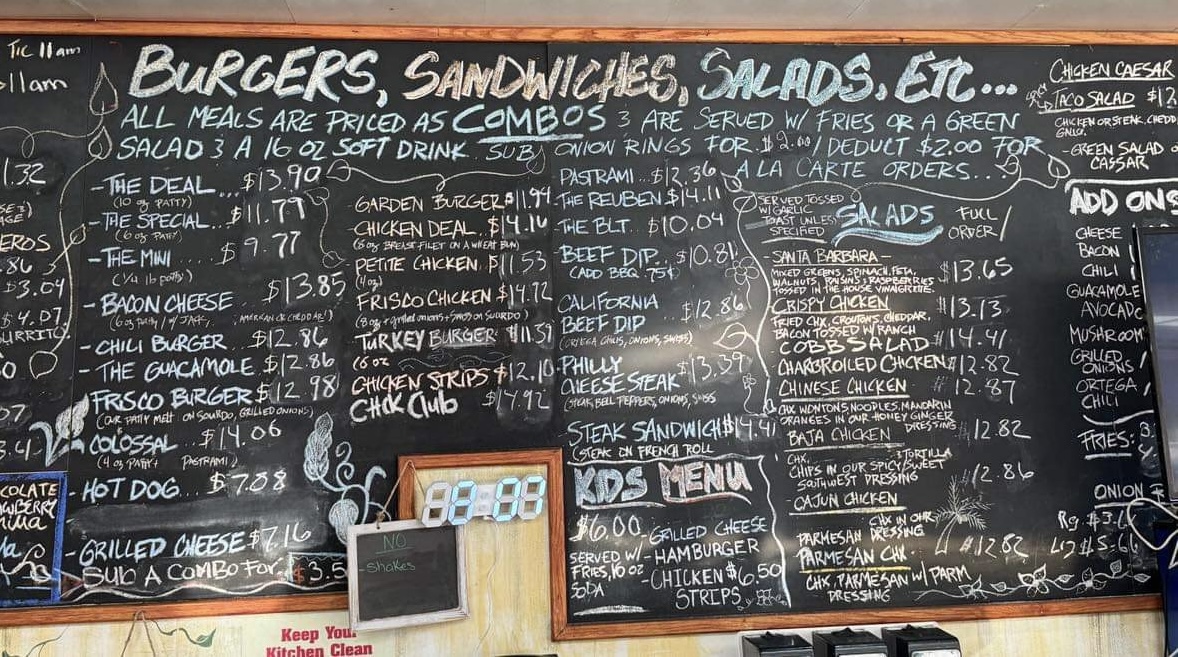 Tic 11am
11am
BURGERS, SANDWICHES, SALADS, ETC...
ALL MEALS ARE PRICED AS COMBOS & ARE SERVED W/ FRIES OR A GREEN
SALAD & A 16 OZ SOFT DRINK. SUB ONION RINGS FOR $2.00/DEDUCT $2.00 FOR
A LA CARTE ORDERS...
- THE DEAL... $13.90
(10 oz. PATTY)
- THE SPECIAL $11.79
(6 oz PATTY)
- THE MINI $9.77
(1/4 lb patty)
- BACON CHEESE $13.85
(6 oz PATTY / W/ JACK, AMERICAN OR CHEDDAR!)
- CHILI BURGER $12.86
- THE GUACAMOLE $12.86
FRISCO BURGER $12.98
(OUR PATTY MELT ON SOURDO, GRILLED ONIONS)
COLOSSAL $14.06
(4 oz PATTY + PASTRAMI)
- HOT DOG... $7.08
- GRILLED CHEESE $7.16
SUB A COMBO FOR $3.5
GARDEN BURGER $11.94
CHICKEN DEAL $14.16
(8 oz BREAST FILET ON A WHEAT BUN)
PETITE CHICKEN $11.53
(4 oz)
FRISCO CHICKEN $14.72
(8 oz + grilled onions + swiss on SOURDO)
TURKEY BURGER $11.37
(6 oz
CHICKEN STRIPS $12.10
CHCK Club $14.92
NO
- Shakes
PASTRAMI... $12.36
THE REUBEN $14.11
THE BLT. $10.04
BEEF DIP... $10.81
(ADD BBQ .75¢)
CALIFORNIA
BEEF DIP $12.86
(ORTEGA CHILIS, ONIONS, SWISS)
PHILLY
CHEESE STEAK $13.39
(STEAK, BELL PEPPERS, ONIONS, SWISS
STEAK SANDWICH $14.41
(STEAK ON FRENCH ROLL
KIDS MENU
$6.00 - GRILLED CHEESE
SERVED W/ - HAMBURGER
FRIES, 10 OZ - CHICKEN $6.50
SODA STRIPS
SERVED TOSSED
W/ GARLIC
TOAST UNLESS
SPECIFIED
SALADS
FULL
ORDER/
SANTA BARBARA - $13.65
MIXED GREENS, SPINACH, FETA,
WALNUTS, RAISINS & RASPBERRIES
TOSSED IN THE HOUSE VINAIGRETTE.
CRISPY CHICKEN $13.13
FRIED CHX, CROUTONS, CHEDDAR,
BACON TOSSED W/ RANCH
COBB SALAD $14.41
CHARBROILED CHICKEN $12.82
CHINESE CHICKEN 12.87
CHX WONTONS NOODLES, MANDARIN
ORANGES IN OUR HONEY GINGER
DRESSING
BAJA CHICKEN 12.82
CHX, TORTILLA
CHIPS IN OUR SPICY/SWEET
SOUTHWEST DRESSING $12.86
- CAJUN CHICKEN
CHX IN OUR
PARMESAN DRESSING
PARMESAN CHX $12.82
CHX, PARMESAN W/ PARM
DRESSING
CHICKEN CAESAR
TACO SALAD $12
CHICKEN OR STEAK, CHEDD
- GREEN SALAD
ADD ONS
CHEESE
BACON
CHILI
GUACAMOLE
AVOCADO
MUSHROOM
GRILLED
ONIONS
ORTEGA
CHILI
FRIES:
ONION
Keep Your
Kitchen Clean